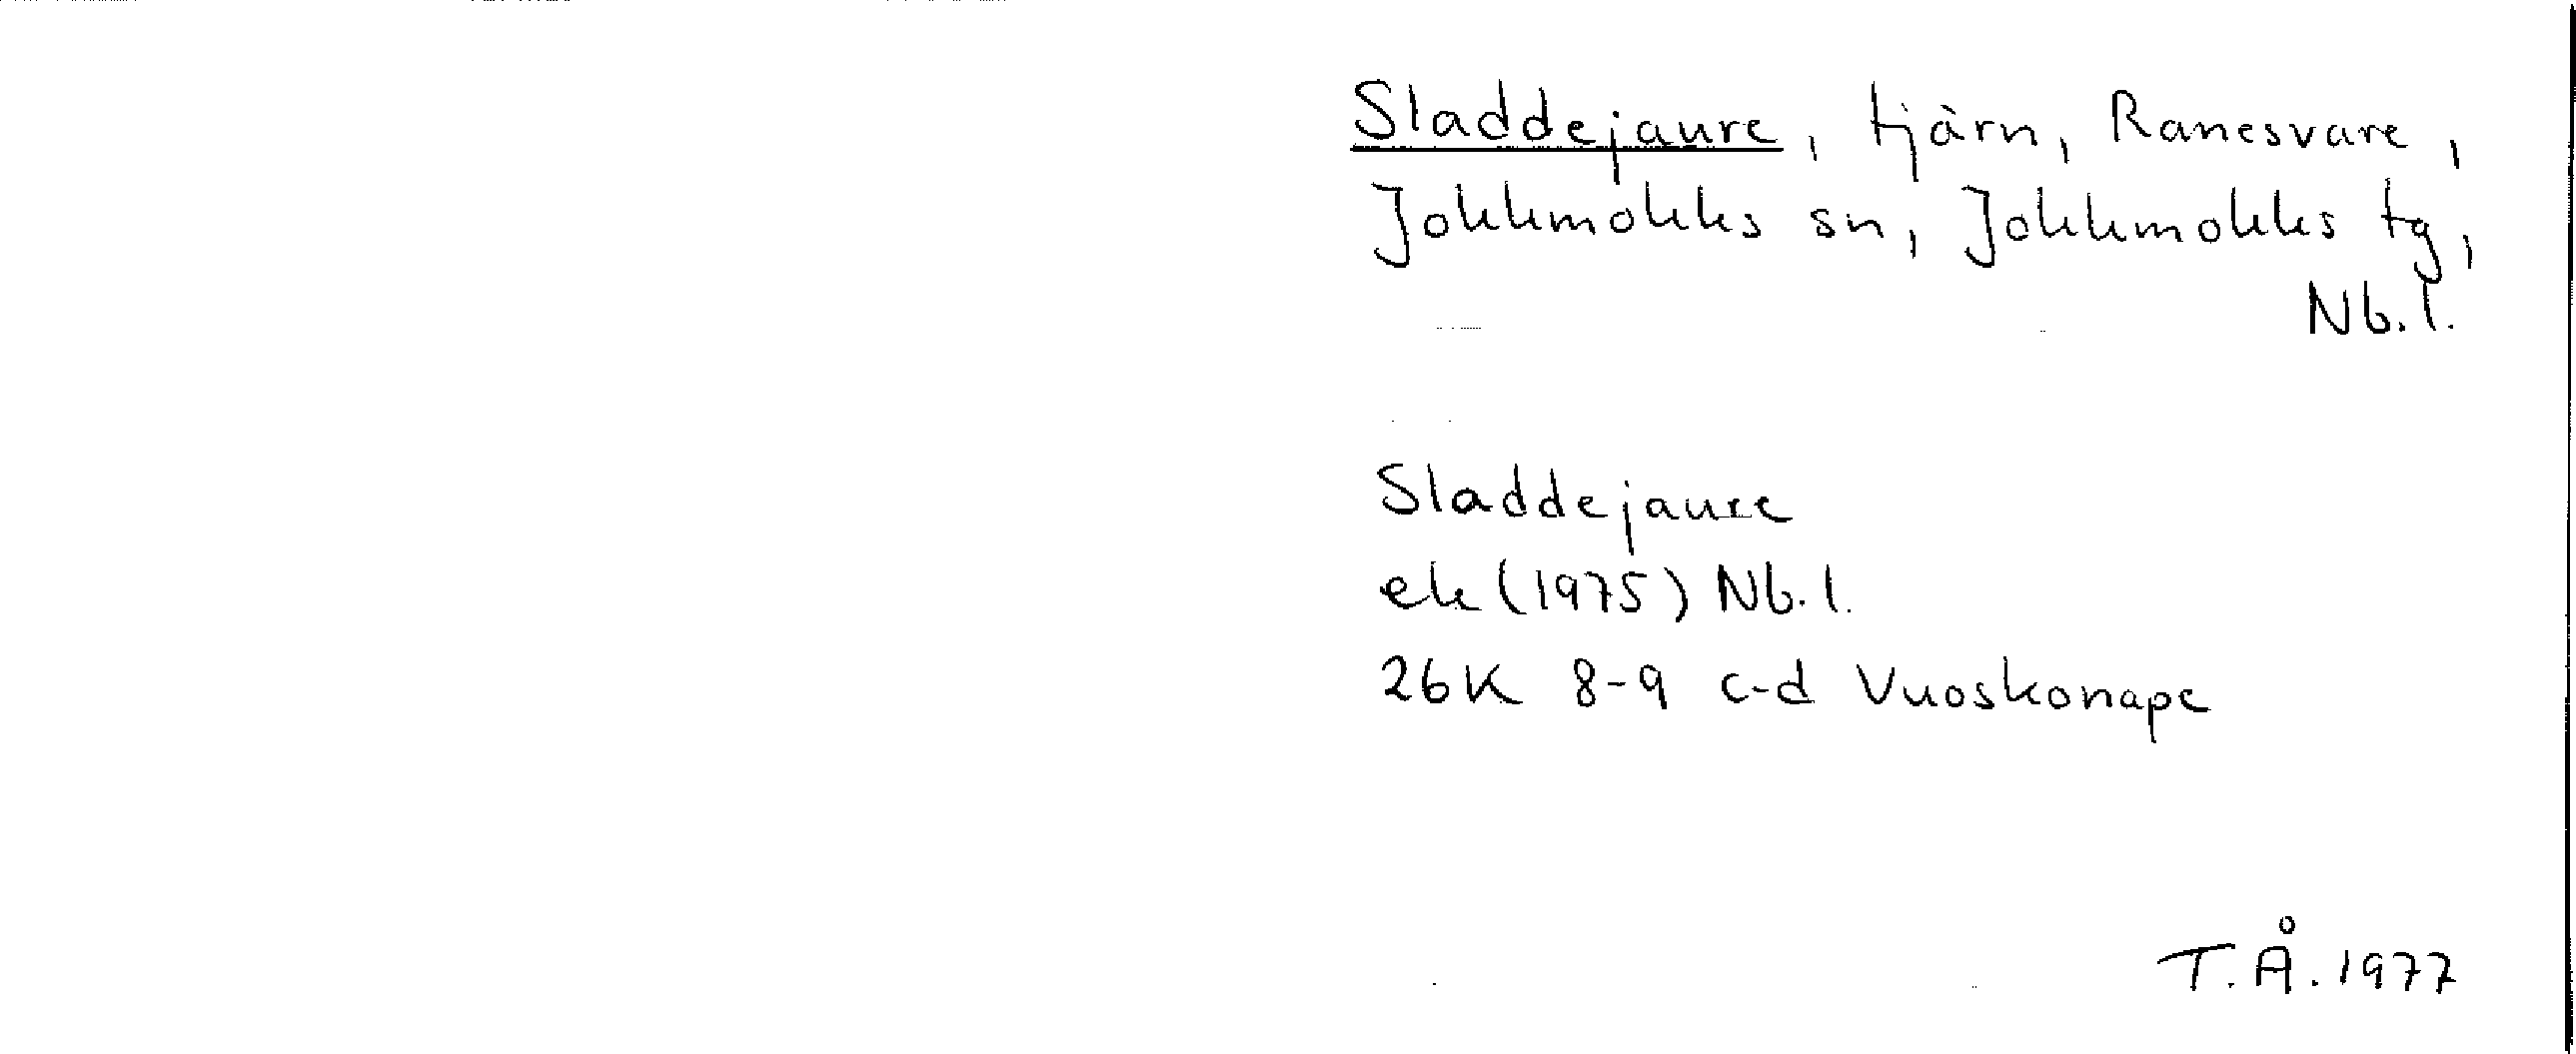 Sladdejaure, tjärn, Ranesvare,
Jokkmokks sn, Jokkmokks tg,
Nb.l.
Sladdejaure
ek (1975) Nb.l.
26K 8-9 c-d Vuoskonape
T.Å. 1977